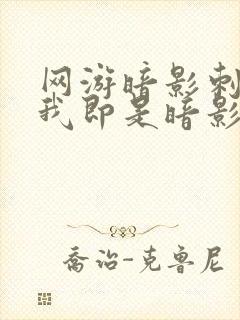 网游暗影刺
我即是暗影
乔治-克鲁尼